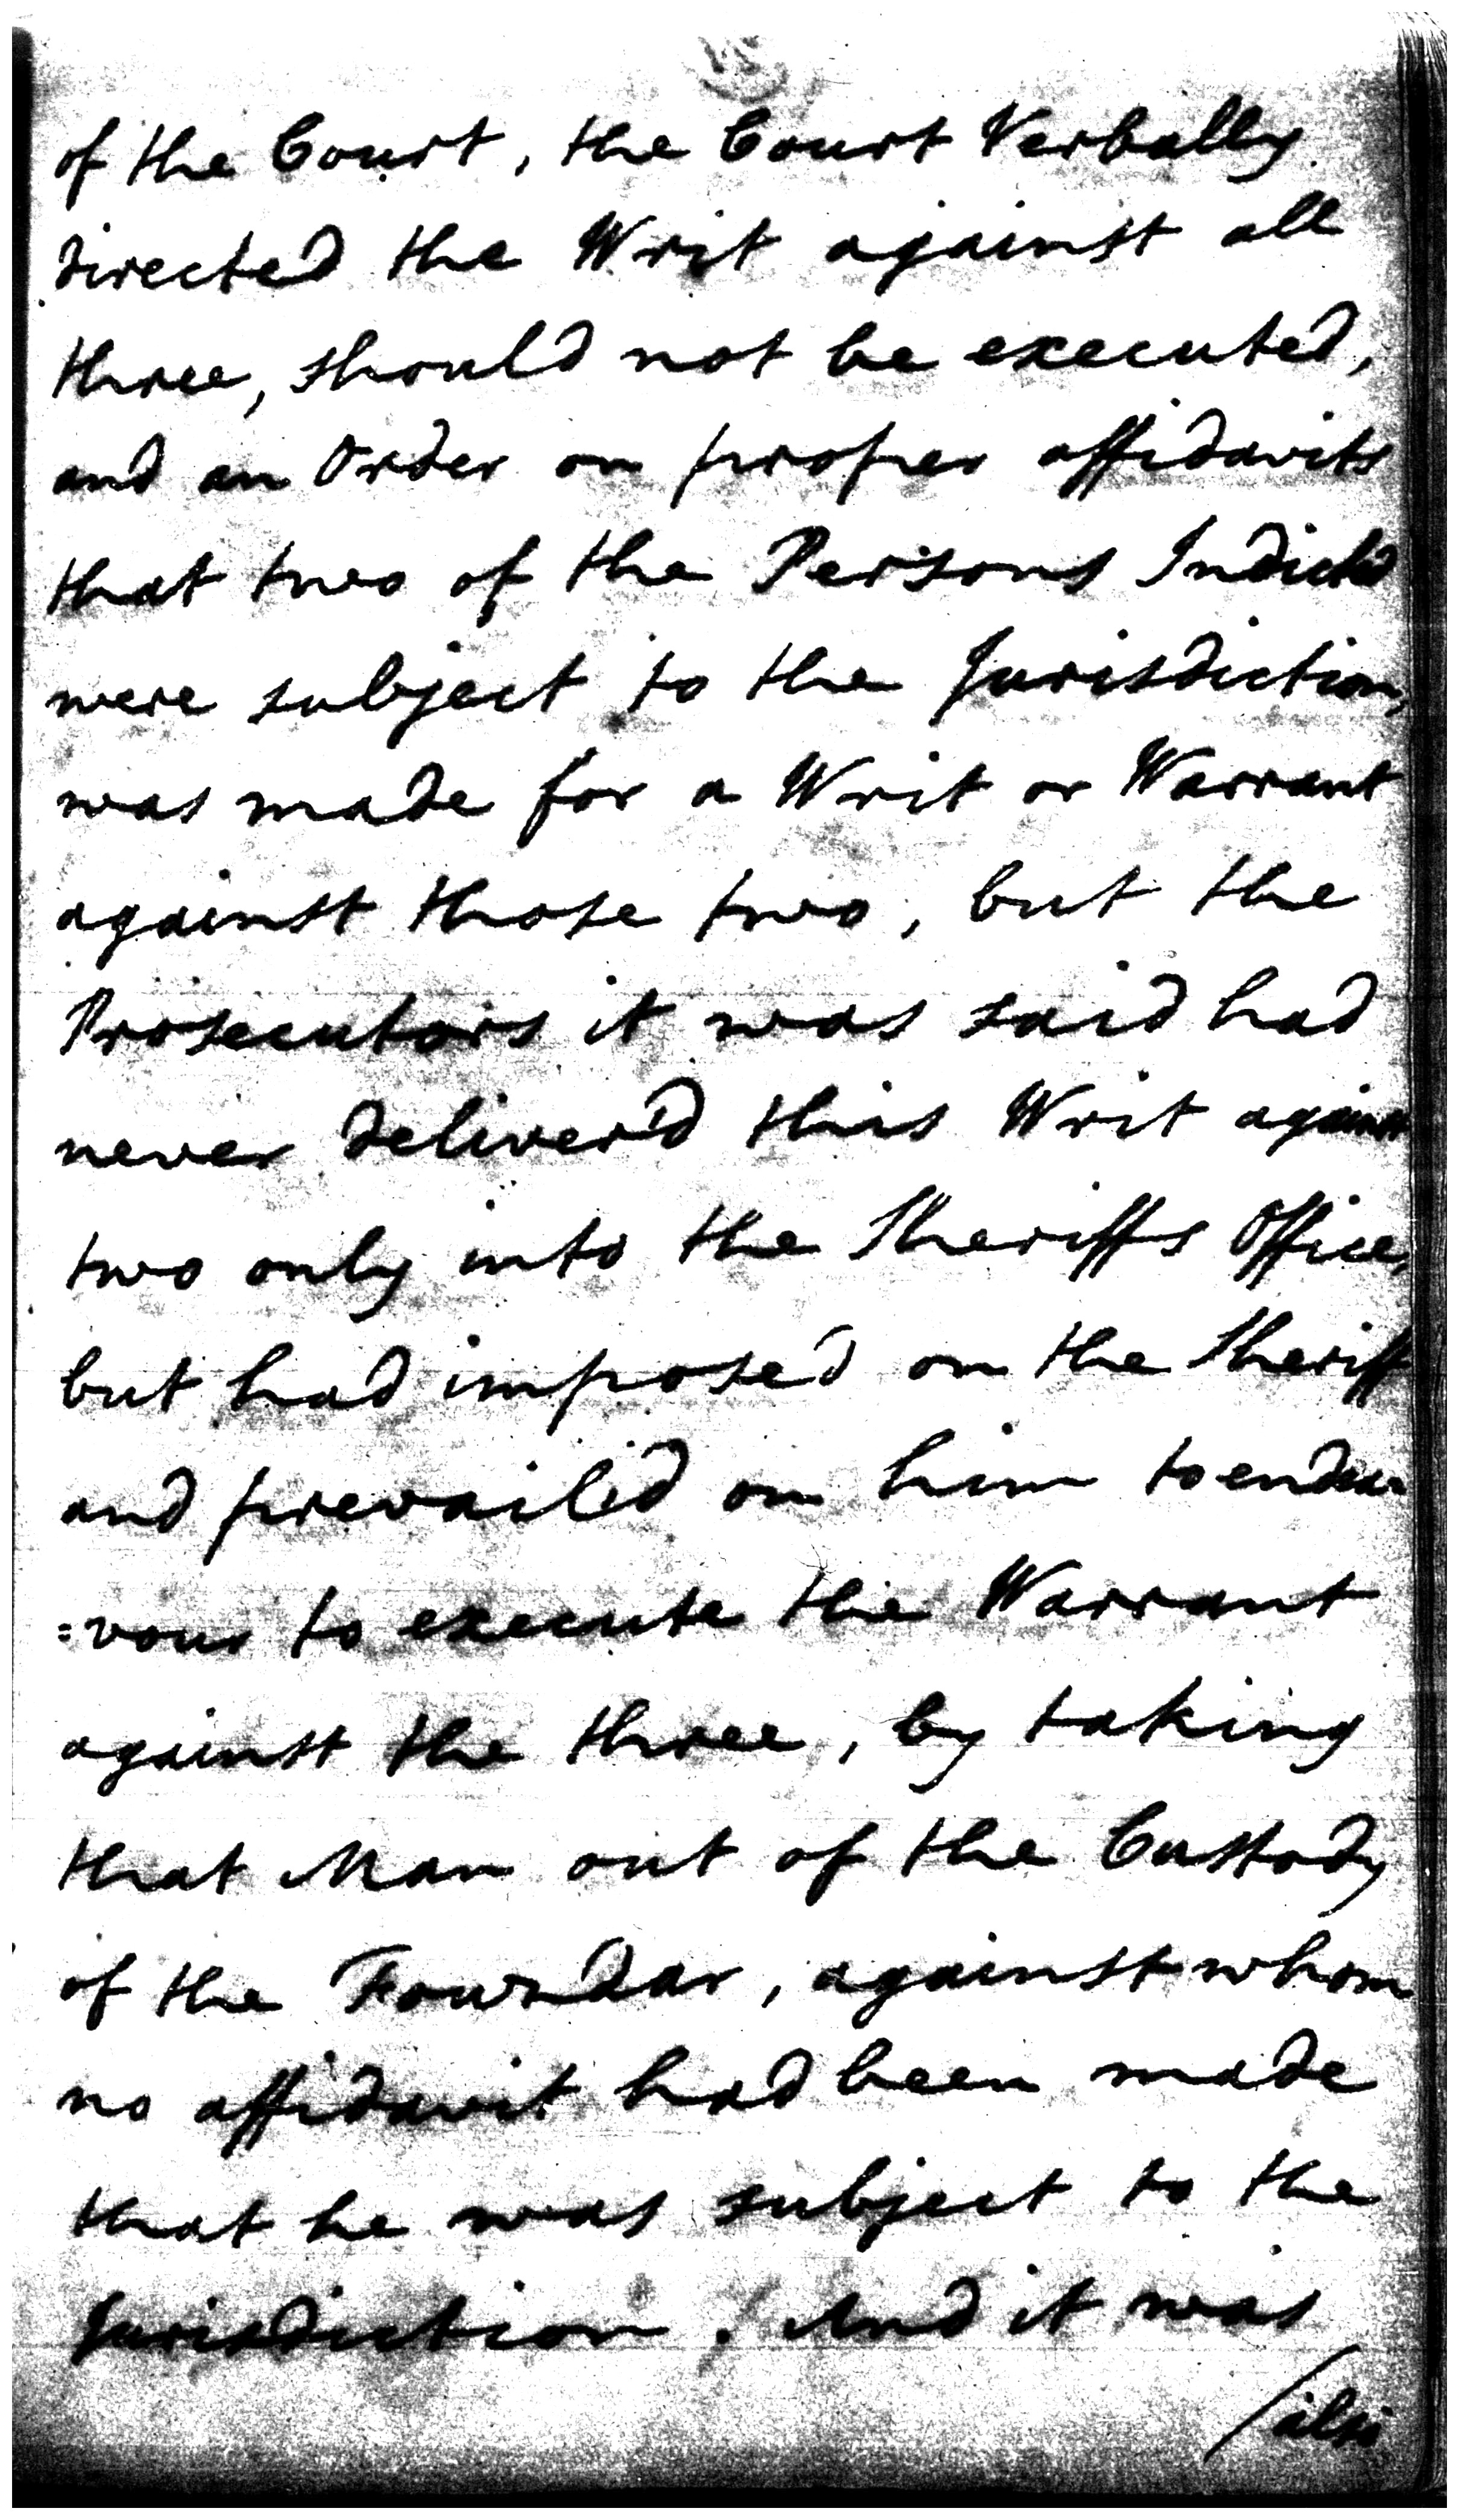 of the Court, the Court Verbally
directed the Writ against all
three, should not be executed,
and an Order on proper affidavits
that two of the Persons Indicted
were subject to the Jurisdiction,
was made for a Writ or Warrant
against those two, but the
Prosecutors it was said had
never deliver'd this Writ against
two only into the Sheriffs Office,
but had impose'd on the Sheriff
and prevail'd on him to endea
=vour to execute the Warrant
against the three, by taking
that Man out of the Custody
of the Fowzdar, against whom
no affidavit had been made
that he was subject to the
Jurisdiction. And it was
/also